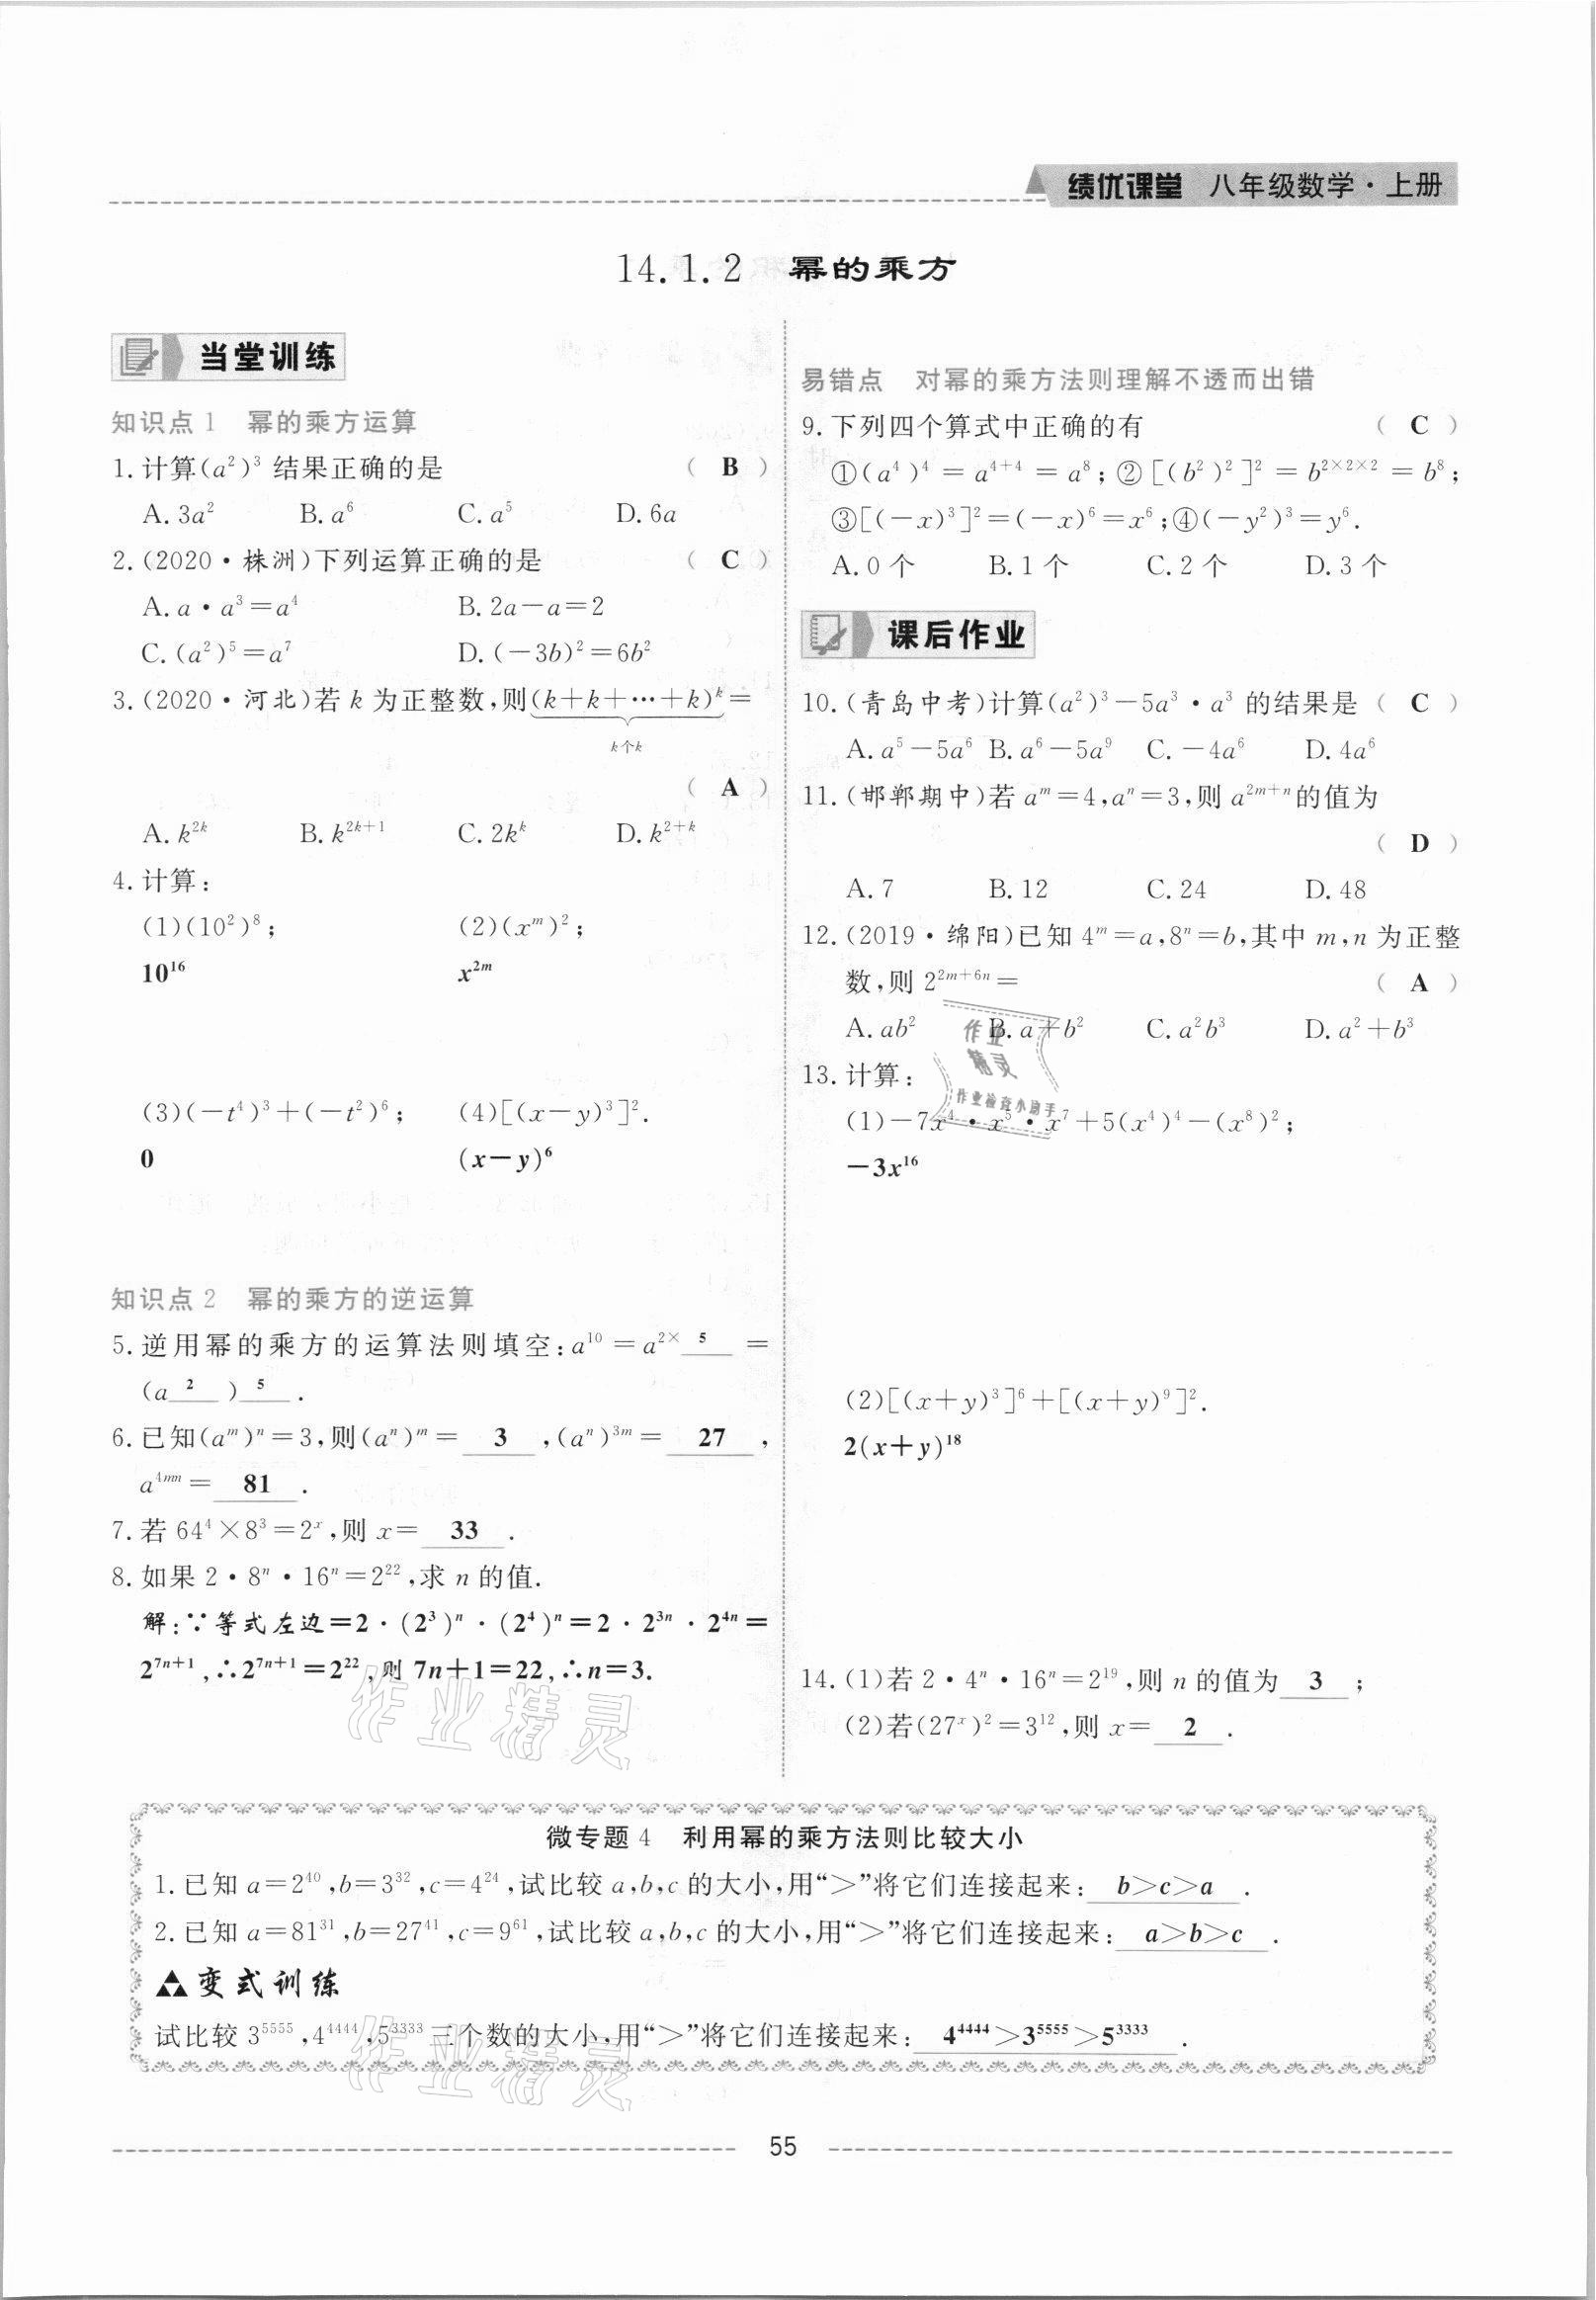 绩优课堂 八年级数学·上册
14.1.2 幂的乘方
当堂训练
知识点1 幂的乘方运算
1.计算(a²)³ 结果正确的是 ( B )
A.3a² B.a⁶ C.a⁵ D.6a
2.(2020·株洲)下列运算正确的是 ( C )
A.a·a³=a⁴ B.2a-a=2
C.(a²)⁵=a⁷ D.(-3b)²=6b²
3.(2020·河北)若 k 为正整数,则(k+k+…+k)ᵏ=
k个k
( A )
A.k²ᵏ B.k²ᵏ⁺¹ C.2kᵏ D.k²⁺ᵏ
4.计算:
(1)(10²)⁸; (2)(xᵐ)²;
10¹⁶ x²ᵐ
(3)(-t⁴)³+(-t²)⁶; (4)[(x-y)³]².
0 (x-y)⁶
知识点2 幂的乘方的逆运算
5.逆用幂的乘方的运算法则填空:a¹⁰=a^{2×5}=
(a²)⁵.
6.已知(aᵐ)ⁿ=3,则(aⁿ)ᵐ= 3 ,(aⁿ)³ᵐ= 27 ,
a⁴ᵐⁿ= 81 .
7.若 64⁴×8³=2ˣ,则 x= 33 .
8.如果 2·8ⁿ·16ⁿ=2²²,求 n 的值.
解:∵等式左边=2·(2³)ⁿ·(2⁴)ⁿ=2·2³ⁿ·2⁴ⁿ=
2⁷ⁿ⁺¹,∴2⁷ⁿ⁺¹=2²²,则 7n+1=22,∴n=3.
易错点 对幂的乘方法则理解不透而出错
9.下列四个算式中正确的有 ( C )
①(a⁴)⁴=a⁴⁺⁴=a⁸;②[(b²)²]²=b^{2×2×2}=b⁸;
③[(-x)³]²=(-x)⁶=x⁶;④(-y²)³=y⁶.
A.0个 B.1个 C.2个 D.3个
课后作业
10.(青岛中考)计算(a²)³-5a³·a³ 的结果是 ( C )
A.a⁵-5a⁶ B.a⁶-5a⁹ C.-4a⁶ D.4a⁶
11.(邯郸期中)若 aᵐ=4,aⁿ=3,则 a²ᵐ⁺ⁿ的值为
( D )
A.7 B.12 C.24 D.48
12.(2019·绵阳)已知 4ᵐ=a,8ⁿ=b,其中 m,n 为正整
数,则 2²ᵐ⁺⁶ⁿ= ( A )
A.ab² B.a+b² C.a²b³ D.a²+b³
作业
精灵
作业检查小助手
13.计算:
(1)-7x⁴·x⁵·x⁷+5(x⁴)⁴-(x⁸)²;
-3x¹⁶
(2)[(x+y)³]⁶+[(x+y)⁹]².
2(x+y)¹⁸
14.(1)若 2·4ⁿ·16ⁿ=2¹⁹,则 n 的值为 3 ;
(2)若(27ˣ)²=3¹²,则 x= 2 .
作业精灵
微专题4 利用幂的乘方法则比较大小
1.已知 a=2⁴⁰,b=3³²,c=4²⁴,试比较 a,b,c 的大小,用“>”将它们连接起来: b>c>a .
2.已知 a=81³¹,b=27⁴¹,c=9⁶¹,试比较 a,b,c 的大小,用“>”将它们连接起来: a>b>c .
变式训练
试比较 3⁵⁵⁵⁵,4⁴⁴⁴⁴,5³³³³三个数的大小,用“>”将它们连接起来: 4⁴⁴⁴⁴>3⁵⁵⁵⁵>5³³³³ .
作业精灵
55